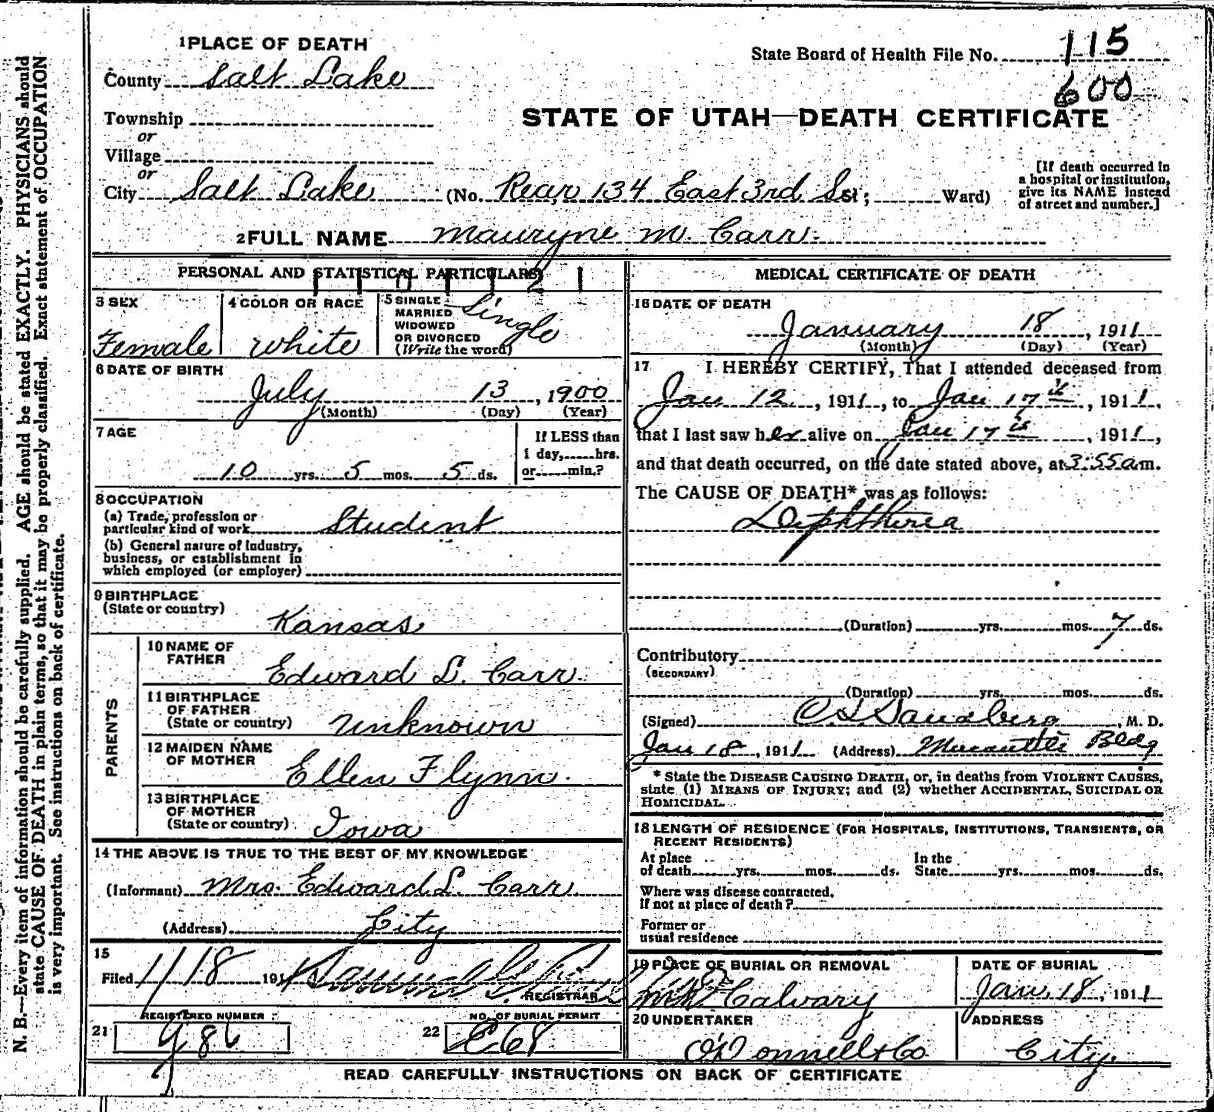 N. B.—Every item of information should be carefully supplied. AGE should be stated EXACTLY. PHYSICIANS should
state CAUSE OF DEATH in plain terms, so that it may be properly classified. Exact statement of OCCUPATION
is very important. See instructions on back of certificate.
1 PLACE OF DEATH
County Salt Lake
Township
or
Village
or
City Salt Lake (No. Rear 134 East 3rd So St; Ward)
State Board of Health File No. 115
600
STATE OF UTAH—DEATH CERTIFICATE
[If death occurred in
a hospital or institution,
give its NAME instead
of street and number.]
2 FULL NAME Mauryne M. Carr.
PERSONAL AND STATISTICAL PARTICULARS
3 SEX
Female
4 COLOR OR RACE
White
5 SINGLE
MARRIED
WIDOWED
OR DIVORCED
(Write the word)
Single
6 DATE OF BIRTH
July 13, 1900
(Month) (Day) (Year)
7 AGE
10 yrs. 5 mos. 5 ds.
If LESS than
1 day, hrs.
or min.?
8 OCCUPATION
(a) Trade, profession or
particular kind of work Student
(b) General nature of industry,
business, or establishment in
which employed (or employer)
9 BIRTHPLACE
(State or country)
Kansas
PARENTS
10 NAME OF
FATHER
Edward L. Carr.
11 BIRTHPLACE
OF FATHER
(State or country) Unknown
12 MAIDEN NAME
OF MOTHER
Ellen Flynn.
13 BIRTHPLACE
OF MOTHER
(State or country) Iowa
14 THE ABOVE IS TRUE TO THE BEST OF MY KNOWLEDGE
(Informant) Mrs. Edward L. Carr
(Address) City
15
Filed 1/18 1911
REGISTRAR
REGISTERED NUMBER
21 986
NO. OF BURIAL PERMIT
22 C68
MEDICAL CERTIFICATE OF DEATH
16 DATE OF DEATH
January 18, 1911
(Month) (Day) (Year)
17 I HEREBY CERTIFY, That I attended deceased from
Jan 12, 1911, to Jan 17th, 1911,
that I last saw her alive on Jan 17th, 1911,
and that death occurred, on the date stated above, at 3:55 a m.
The CAUSE OF DEATH* was as follows:
Diphtheria
(Duration) yrs. mos. 7 ds.
Contributory
(SECONDARY)
(Duration) yrs. mos. ds.
(Signed) , M. D.
Jan 18, 1911 (Address) Mercantile Bldg
* State the DISEASE CAUSING DEATH, or, in deaths from VIOLENT CAUSES,
state (1) MEANS OF INJURY; and (2) whether ACCIDENTAL, SUICIDAL OR
HOMICIDAL.
18 LENGTH OF RESIDENCE (FOR HOSPITALS, INSTITUTIONS, TRANSIENTS, OR
RECENT RESIDENTS)
At place
of death yrs. mos. ds.
In the
State yrs. mos. ds.
Where was disease contracted,
if not at place of death?
Former or
usual residence
19 PLACE OF BURIAL OR REMOVAL
Calvary
DATE OF BURIAL
Jan. 18, 1911
20 UNDERTAKER
O'Donnell & Co
ADDRESS
City.
READ CAREFULLY INSTRUCTIONS ON BACK OF CERTIFICATE